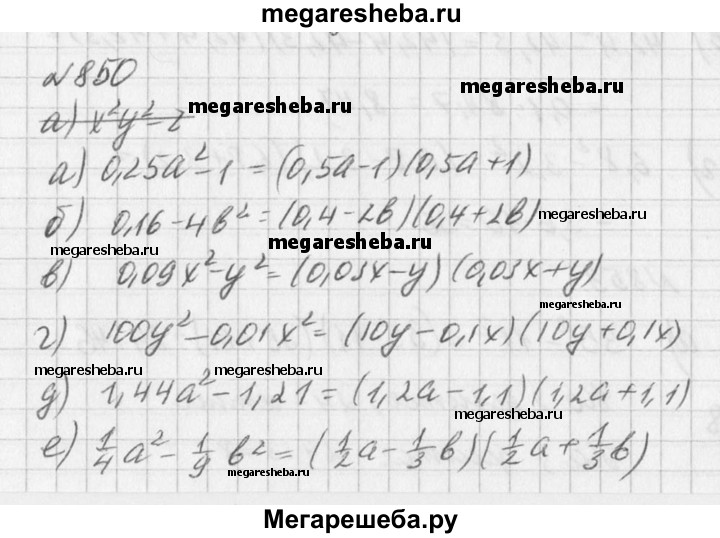 megaresheba.ru
№850
megaresheba.ru
а) x²y²-z
megaresheba.ru
а) 0,25a²-1 = (0,5a-1)(0,5a+1)
б) 0,16-4b² = (0,4-2b)(0,4+2b)
megaresheba.ru
megaresheba.ru
megaresheba.ru
в) 0,09x²-y² = (0,03x-y)(0,03x+y)
megaresheba.ru
г) 100y²-0,01x² = (10y-0,1x)(10y+0,1x)
megaresheba.ru
megaresheba.ru
д) 1,44a²-1,21 = (1,2a-1,1)(1,2a+1,1)
megaresheba.ru
е) 1/4a²-1/9b² = (1/2a-1/3b)(1/2a+1/3b)
megaresheba.ru
Мегарешеба.ру